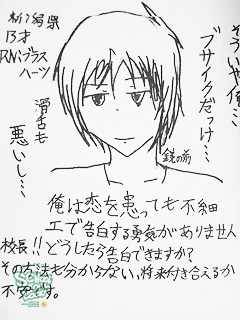 そういや俺…
ブサイクだっけ…
新潟県
13才
RNブラス
ハーツ
滑舌も
悪いし…
鏡の前
俺は恋を患っても不細
工で告白する勇気がありません
校長!!どうしたら告白できますか?
その方法も分からない、将来付き合えるか
不安です。